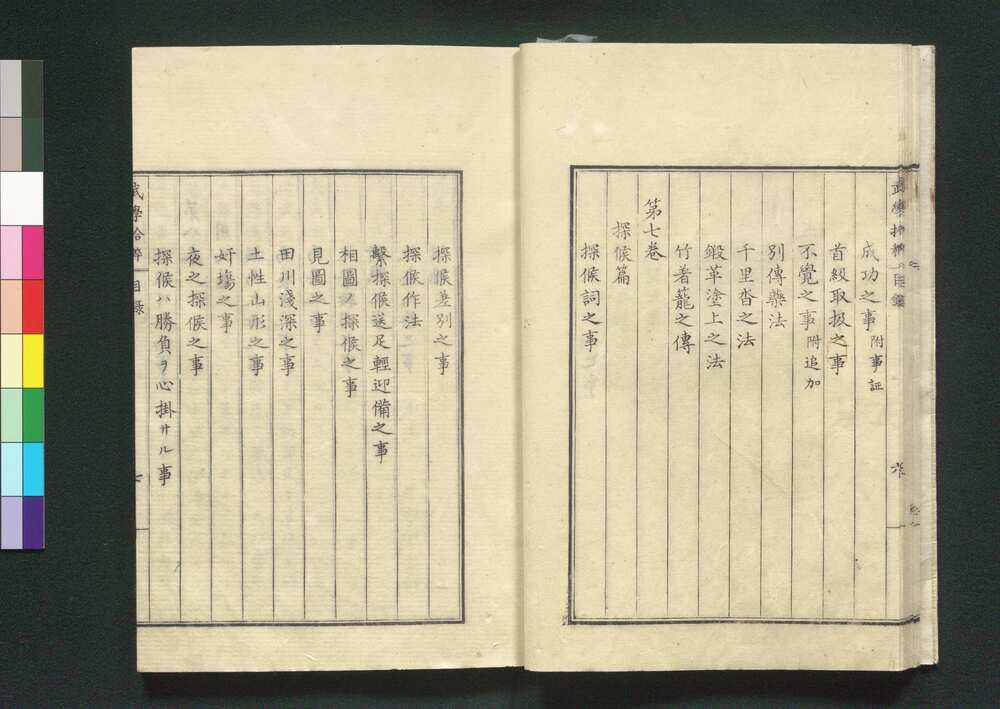 成功之事 附事証
首級取扱之事
不覺之事 附追加
別傳藥法
千里沓之法
鍛革塗上之法
竹着蓏之傳
第七卷
探候篇
探候詞之事
探候差別之事
探候作法
繫探候送足輕迎備之事
相圖ノ探候之事
見圖之事
田川淺深之事
土性山形之事
奸塲之事
夜之探候之事
探候ハ勝負ヲ心掛サル事
武學拾粹 目錄 七